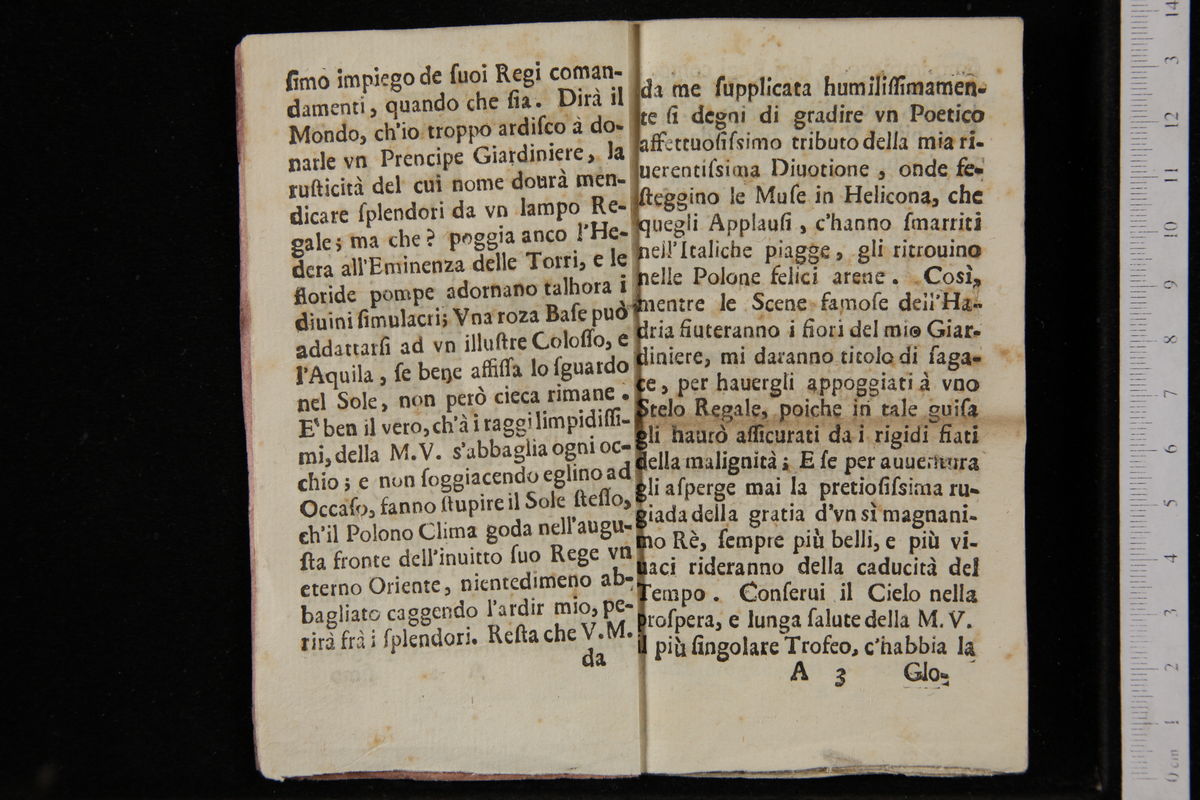 ſimo impiego de ſuoi Regi coman-
damenti, quando che ſia. Dirà il
Mondo, ch'io troppo ardiſco à do-
narle vn Prencipe Giardiniere, la
ruſticità del cui nome dourà men-
dicare ſplendori da vn lampo Re-
gale; ma che? poggia anco l'He-
dera all'Eminenza delle Torri, e le
floride pompe adornano talhora i
diuini ſimulacri; Vna roza Baſe può
addattarſi ad vn illuſtre Coloſſo, e
l'Aquila, ſe bene affiſſa lo ſguardo
nel Sole, non però cieca rimane.
E' ben il vero, ch'à i raggi limpidiſſi-
mi, della M.V. s'abbaglia ogni oc-
chio; e non ſoggiacendo eglino ad
Occaſo, fanno ſtupire il Sole ſteſſo,
ch'il Polono Clima goda nell'augu-
ſta fronte dell'inuitto ſuo Rege vn
eterno Oriente, nientedimeno ab-
bagliato caggendo l'ardir mio, pe-
rirà frà i ſplendori. Reſta che V.M.
da
da me ſupplicata humiliſſimamen-
te ſi degni di gradire vn Poetico
affettuoſiſsimo tributo della mia ri-
uerentiſsima Diuotione, onde fe-
ſteggino le Muſe in Helicona, che
quegli Applauſi, c'hanno ſmarriti
nell'Italiche piagge, gli ritrouino
nelle Polone felici arene. Così,
mentre le Scene famoſe dell'Ha-
dria fiuteranno i fiori del mio Giar-
diniere, mi daranno titolo di ſaga-
ce, per hauergli appoggiati à vno
Stelo Regale, poiche in tale guiſa
gli haurò aſſicurati da i rigidi fiati
della malignità; E ſe per auuentura
gli aſperge mai la pretioſiſsima ru-
giada della gratia d'vn sì magnani-
mo Rè, ſempre più belli, e più vi-
uaci rideranno della caducità del
Tempo. Conſerui il Cielo nella
proſpera, e lunga ſalute della M.V.
il più ſingolare Trofeo, c'habbia la
A 3 Glo-
14
3
12
11
10
9
8
7
6
5
4
3
2
1
0 cm